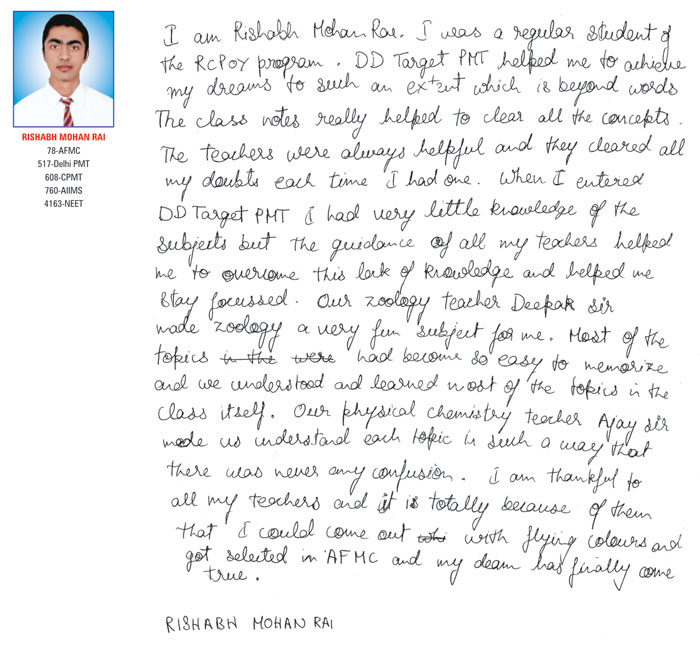 RISHABH MOHAN RAI
78-AFMC
517-Delhi PMT
608-CPMT
760-AIIMS
4163-NEET
I am Rishabh Mohan Rai. I was a regular student of
the RCPOY program. DD Target PMT helped me to achieve
my dreams to such an extent which is beyond words
The class notes really helped to clear all the concepts.
The teachers were always helpful and they cleared all
my doubts each time I had one. When I entered
DD Target PMT I had very little knowledge of the
subjects but the guidance of all my teachers helped
me to overcome this lack of knowledge and helped me
stay focussed. Our zoology teacher Deepak sir
made zoology a very fun subject for me. Most of the
topics in the were had become so easy to memorize
and we understood and learned most of the topics in the
class itself. Our physical chemistry teacher Ajay sir
made us understand each topic in such a way that
there was never any confusion. I am thankful to
all my teachers and it is totally because of them
that I could come out with flying colours and
got selected in AFMC and my deam has finally come
true.
RISHABH MOHAN RAI